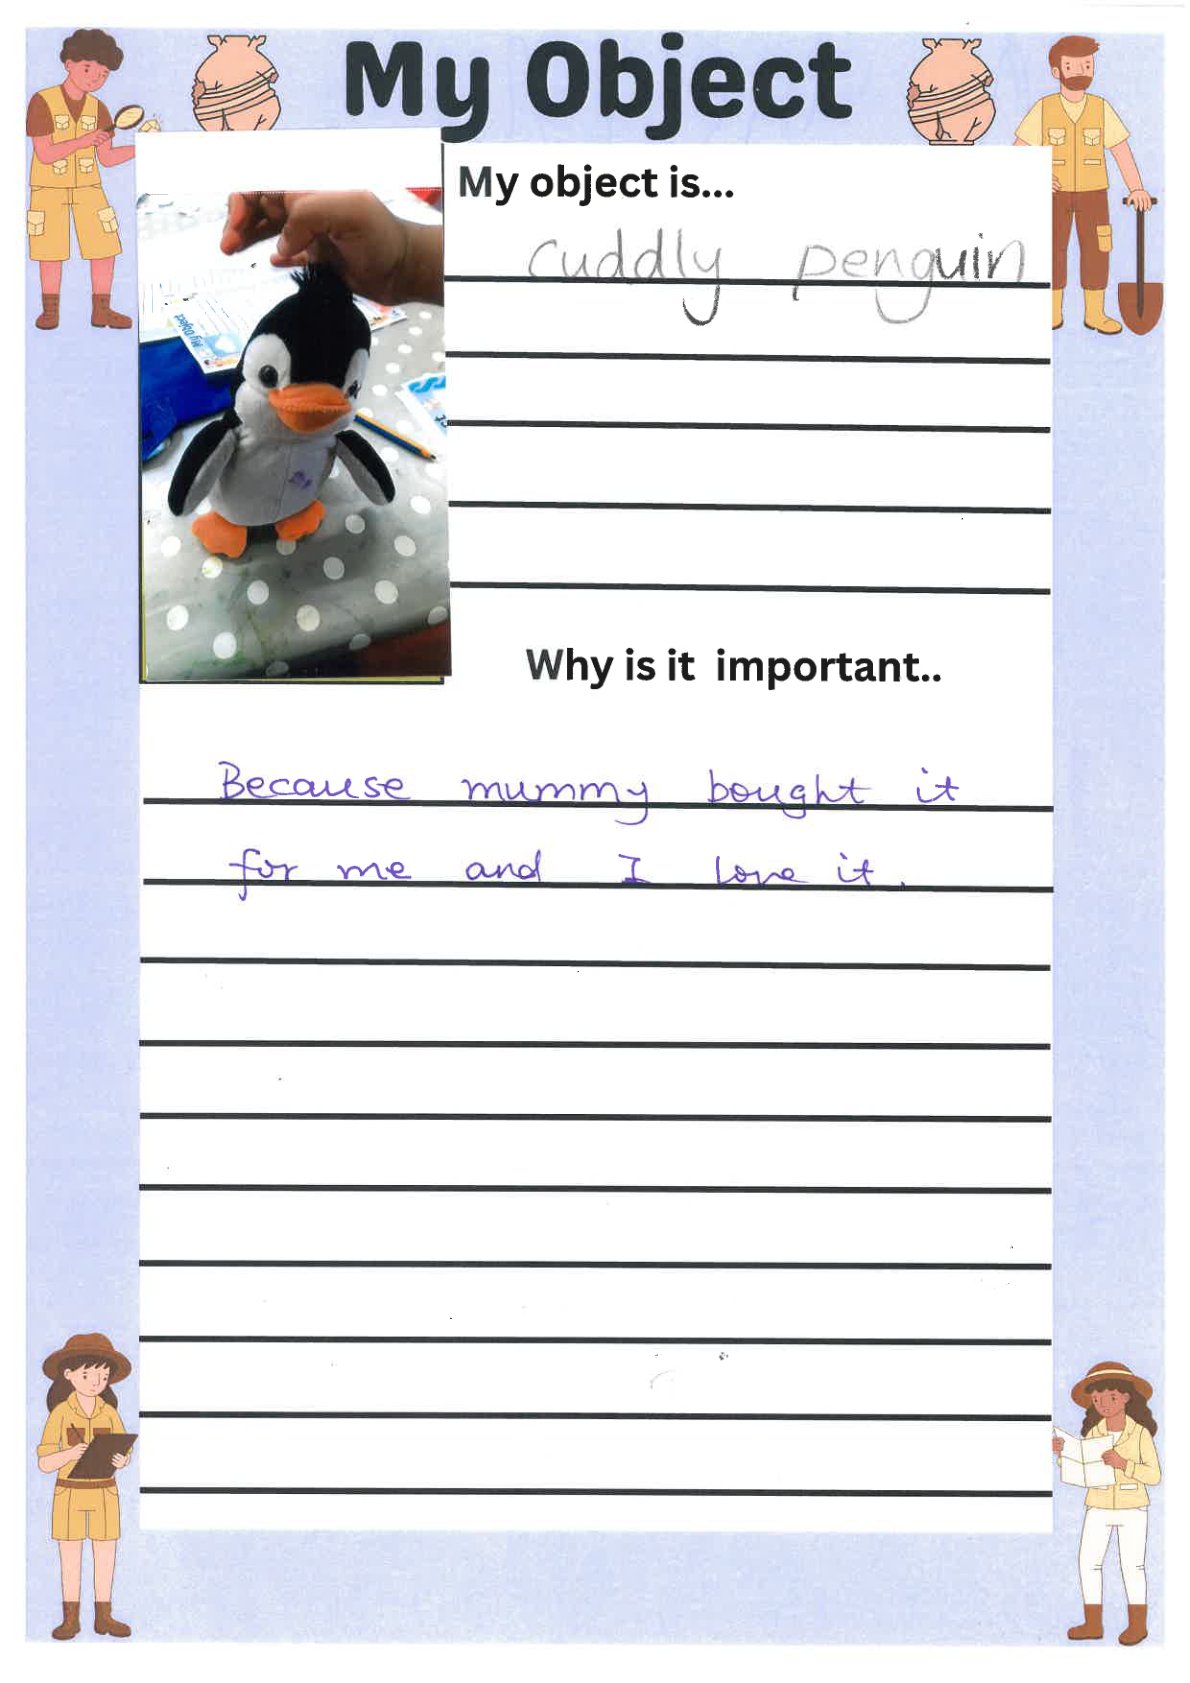 My Object
My object is...
cuddly penguin
Why is it important..
Because mummy bought it
for me and I love it.
My Object